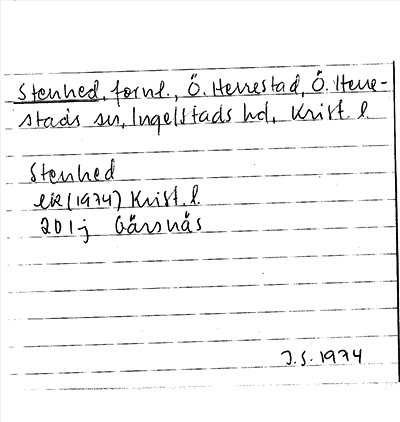 Stenhed, fornl., Ö. Herrestad, Ö. Herre-
stads sn, Ingelstads hd, Krist. l.
Stenhed
EK (1974) Krist. l.
2D1j Gärsnäs
J.S. 1974